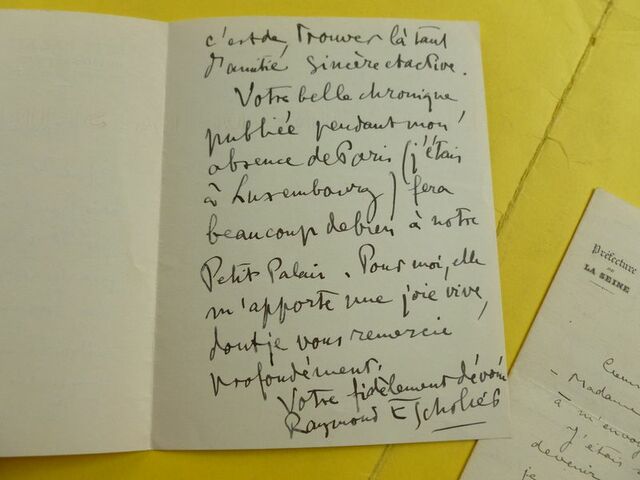 c'est de trouver là tant
d'amitié, sincère et active.
Votre belle chronique
publiée pendant mon
absence de Paris (j'étais
à Luxembourg) fera
beaucoup de bien à notre
Petit Palais. Pour moi, elle
m'apporte une joie vive,
dont je vous remercie
profondément.
Votre fidèlement dévoué
Raymond Escholier
Préfecture
DE
LA SEINE
- Madame
à m'envoy
j'étais
devenir
je